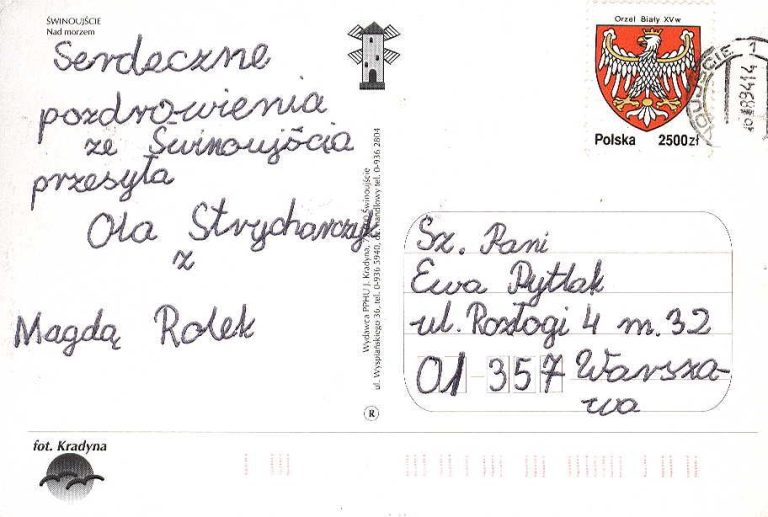 ŚWINOUJŚCIE
Nad morzem
Serdeczne
pozdrowienia
ze Świnoujścia
przesyła
Ola Strycharczyk
z
Magdą Rolek
Wydawca PPHU J. Kradyna, Świnoujście
ul. Wyspiańskiego 36, tel. 0-936 5940, handlowy tel. 0-936 2804
R
Orzeł Biały XVw
Polska 2500zł
Sz. Pani
Ewa Pytlak
ul. Rozłogi 4 m. 32
01 357 Warsza-
wa
fot. Kradyna